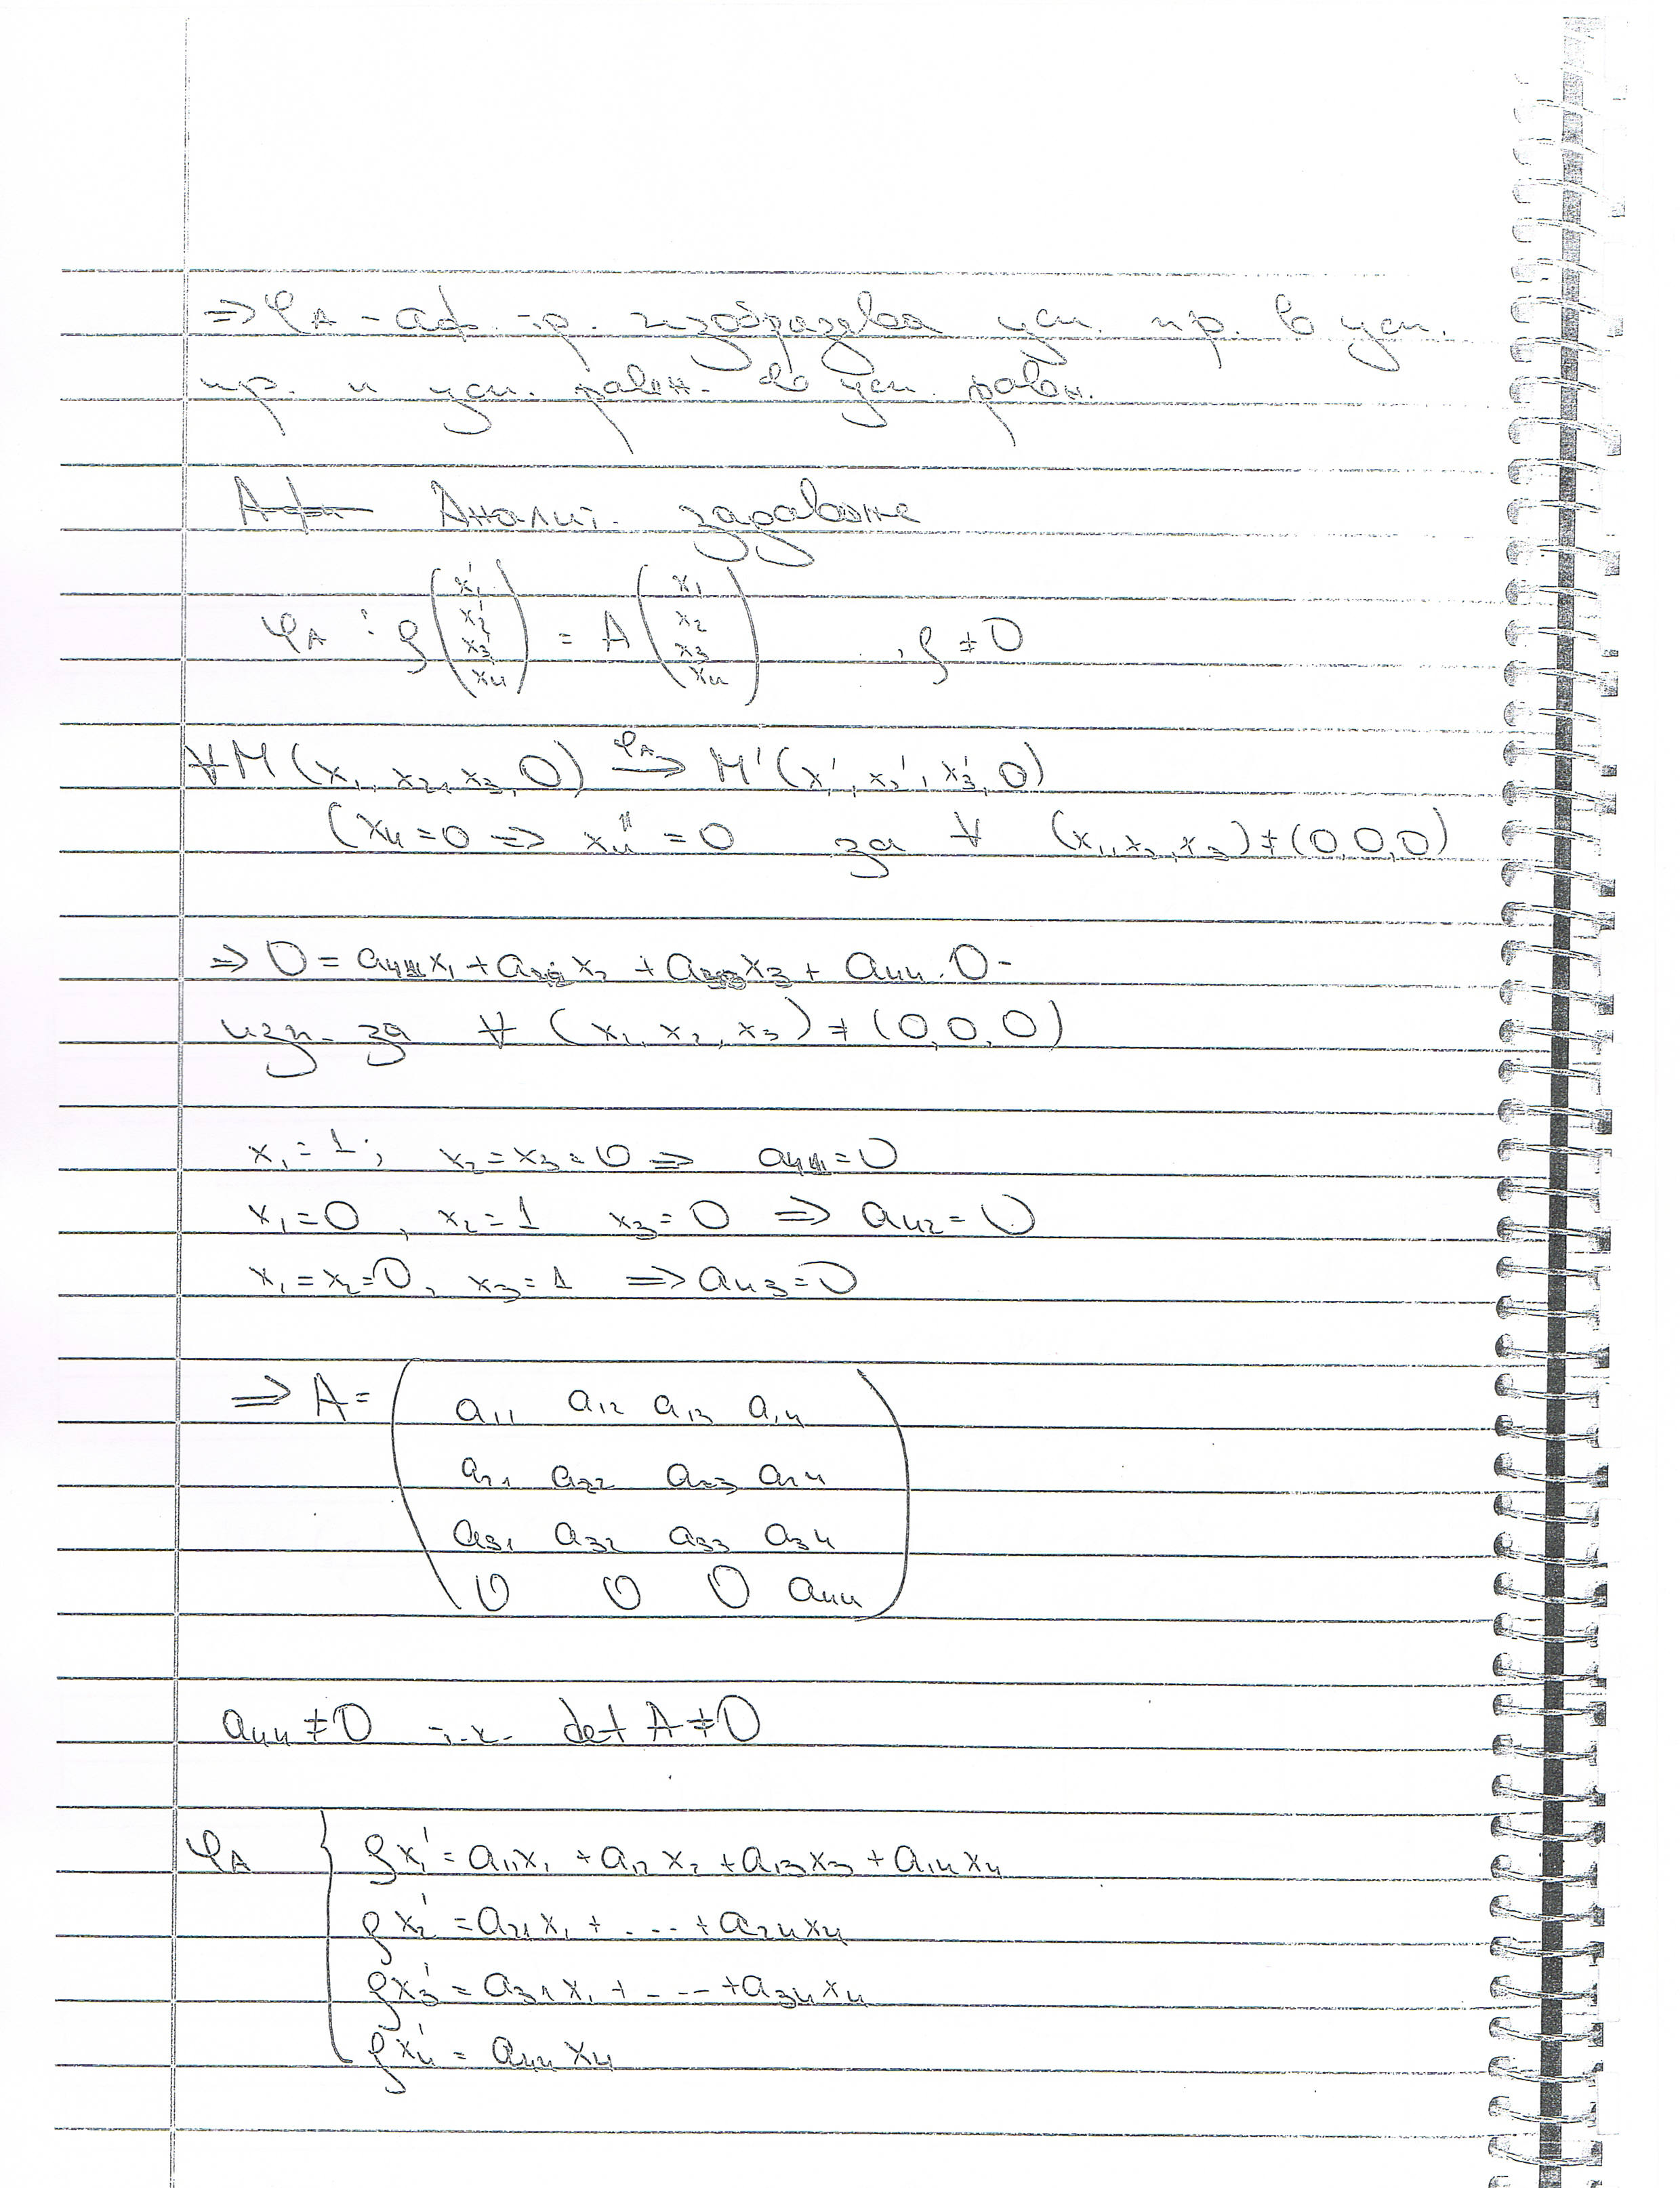 ⇒ φ_A - аф. тр. изобразява усп. пр. в усп.
пр. и усп. равн. в усп. равн.
Анализ. задаване
φ_A : ρ (x₁' x₂' x₃' x₄) = A (x₁ x₂ x₃ x₄) , ρ ≠ 0
∀M (x₁, x₂, x₃, 0) —φ_A→ M' (x₁', x₂', x₃', 0)
(x₄ = 0 ⇒ x₄'' = 0 за ∀ (x₁, x₂, x₃) ≠ (0,0,0)
⇒ 0 = a₄₁x₁ + a₄₂x₂ + a₄₃x₃ + a₄₄.0 -
изп. за ∀ (x₁, x₂, x₃) ≠ (0,0,0)
x₁ = 1; x₂ = x₃ = 0 ⇒ a₄₁ = 0
x₁ = 0, x₂ = 1 x₃ = 0 ⇒ a₄₂ = 0
x₁ = x₂ = 0, x₃ = 1 ⇒ a₄₃ = 0
⇒ A = ( a₁₁ a₁₂ a₁₃ a₁₄
a₂₁ a₂₂ a₂₃ a₂₄
a₃₁ a₃₂ a₃₃ a₃₄
0 0 0 a₄₄ )
a₄₄ ≠ 0 т.к. det A ≠ 0
φ_A { ρx₁' = a₁₁x₁ + a₁₂x₂ + a₁₃x₃ + a₁₄x₄
ρx₂' = a₂₁x₁ + ... + a₂₄x₄
ρx₃' = a₃₁x₁ + ... + a₃₄x₄
ρx₄' = a₄₄x₄